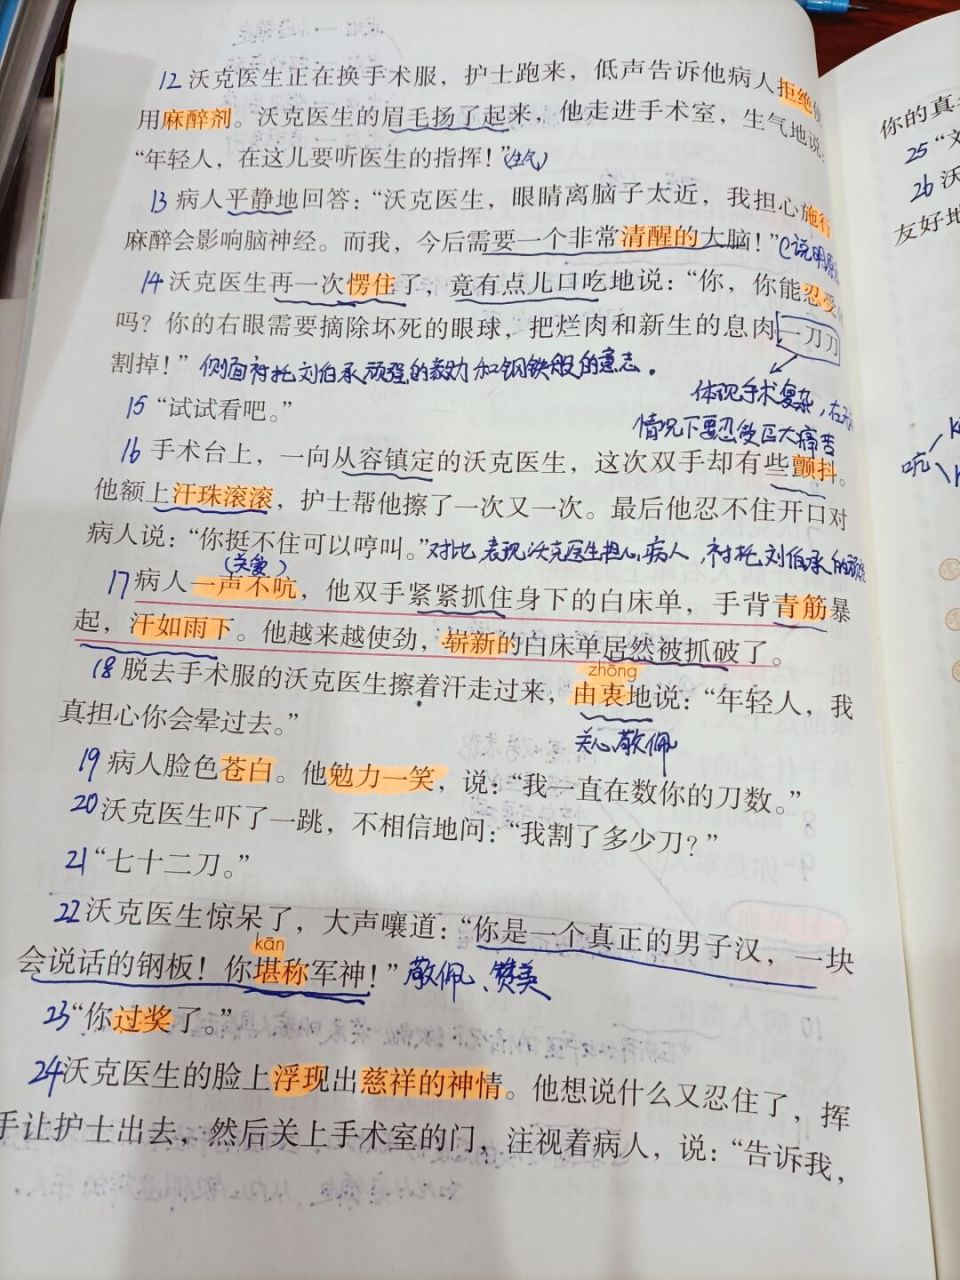 12 沃克医生正在换手术服，护士跑来，低声告诉他病人拒绝
用麻醉剂。沃克医生的眉毛扬了起来，他走进手术室，生气地说：
“年轻人，在这儿要听医生的指挥！”(生气)
13 病人平静地回答：“沃克医生，眼睛离脑子太近，我担心施行
麻醉会影响脑神经。而我，今后需要一个非常清醒的大脑！”(说明
14 沃克医生再一次愣住了，竟有点儿口吃地说：“你，你能忍受
吗？你的右眼需要摘除坏死的眼球，把烂肉和新生的息肉一刀刀
割掉！”侧面衬托刘伯承顽强的毅力和钢铁般的意志。
体现手术复杂，在
15 “试试看吧。”
情况下要忍受巨大痛苦
16 手术台上，一向从容镇定的沃克医生，这次双手却有些颤抖。
他额上汗珠滚滚，护士帮他擦了一次又一次。最后他忍不住开口对
病人说：“你挺不住可以哼叫。”对比 表现沃克医生担心病人，衬托刘伯承的顽强
(关爱)
17 病人一声不吭，他双手紧紧抓住身下的白床单，手背青筋暴
起，汗如雨下。他越来越使劲，崭新的白床单居然被抓破了。
zhōng
18 脱去手术服的沃克医生擦着汗走过来，由衷地说：“年轻人，我
真担心你会晕过去。”
关心 敬佩
19 病人脸色苍白。他勉力一笑，说：“我一直在数你的刀数。”
20 沃克医生吓了一跳，不相信地问：“我割了多少刀？”
21 “七十二刀。”
22 沃克医生惊呆了，大声嚷道：“你是一个真正的男子汉，一块
kān
会说话的钢板！你堪称军神！”敬佩、赞美
23 “你过奖了。”
24 沃克医生的脸上浮现出慈祥的神情。他想说什么又忍住了，挥
手让护士出去，然后关上手术室的门，注视着病人，说：“告诉我，
你的真
25 “
26 沃
友好地
吭